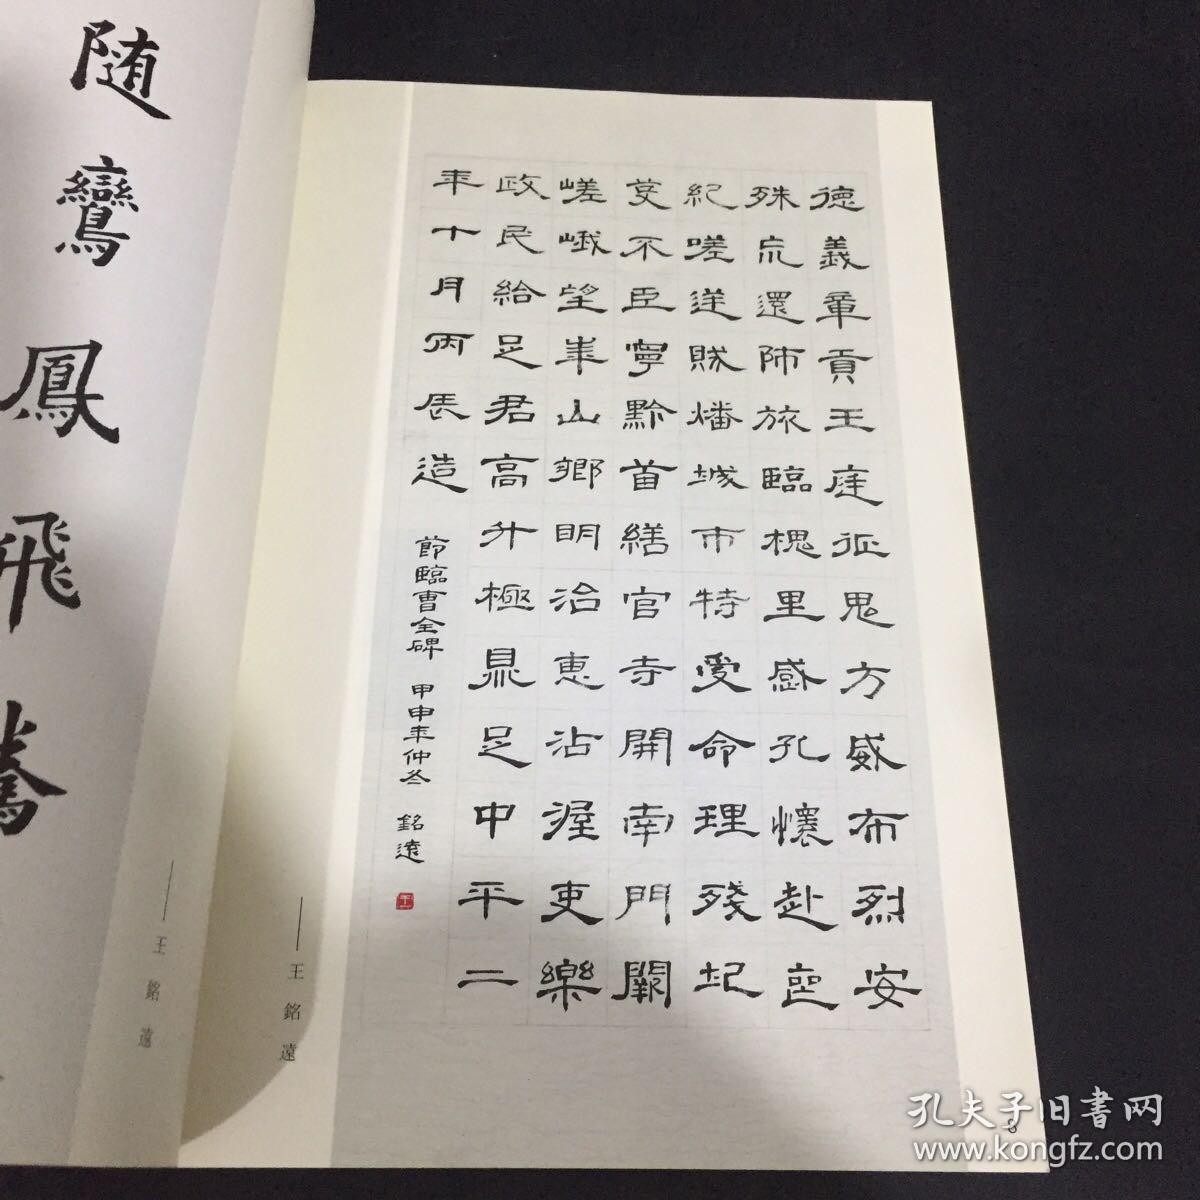 德義章貢王庭征鬼方威布烈安
殊荒還師旅臨槐里感孔懷赴喪
紀嗟逆賊燔城市特受命理殘圮
芟不臣寧黔首繕官寺開南門闕
嵯峨望華山鄉明治惠沾渥吏樂
政民給足君高升極鼎足中平二
年十月丙辰造
節臨曹全碑 甲申年仲冬 銘遠
王
王銘遠
王銘遠
随鸞鳳飛騰
8
孔夫子旧書网
www.kongfz.com